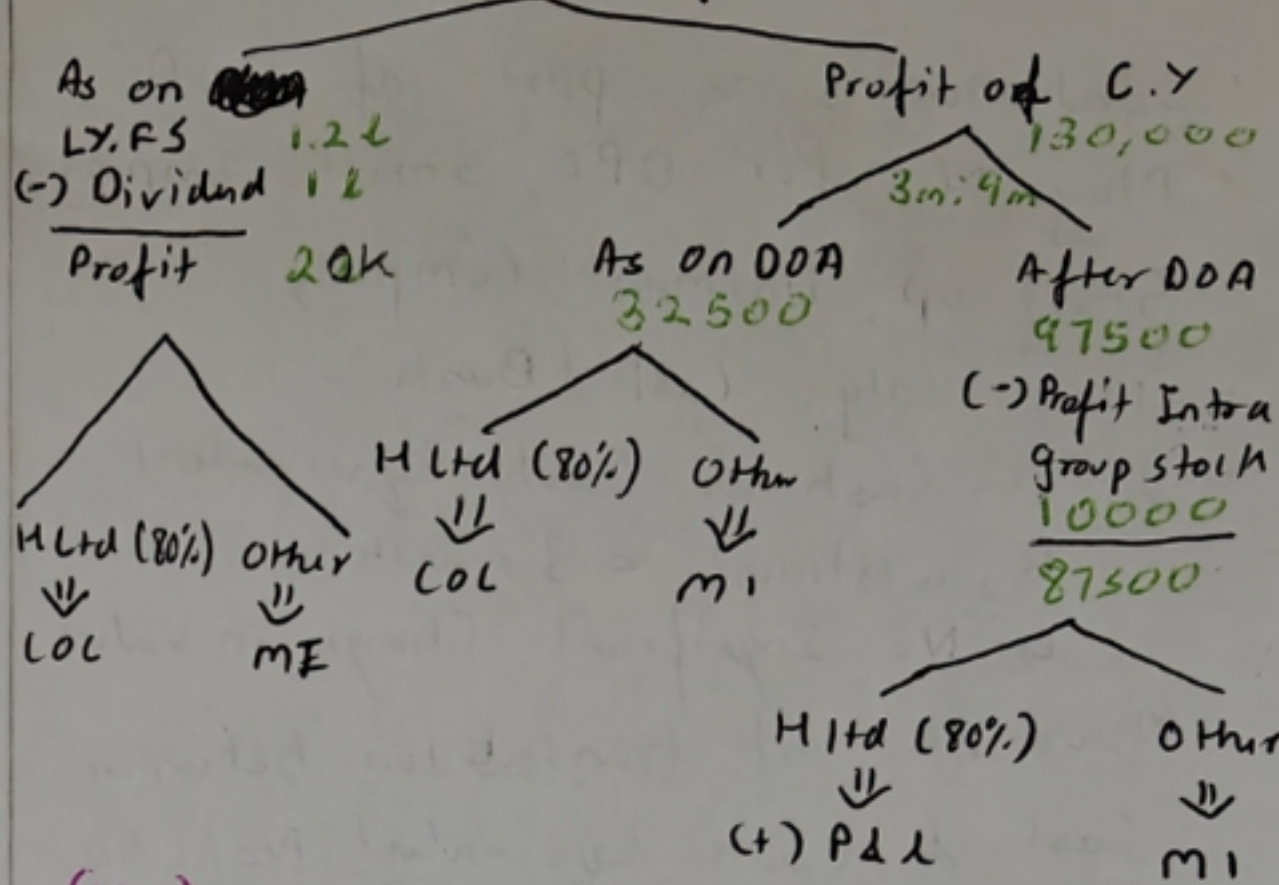 As on
LY.FS 1.2l
(-) Dividend 1l
Profit 20K
H Ltd (80%) Other
COC
MI
Profit of C.Y
130,000
3m: 9m
As on DOA
32500
H Ltd (80%) Other
COC
MI
After DOA
97500
(-) Profit Intra
group stock
10000
87500
H ltd (80%) Other
(+) P&l
MI